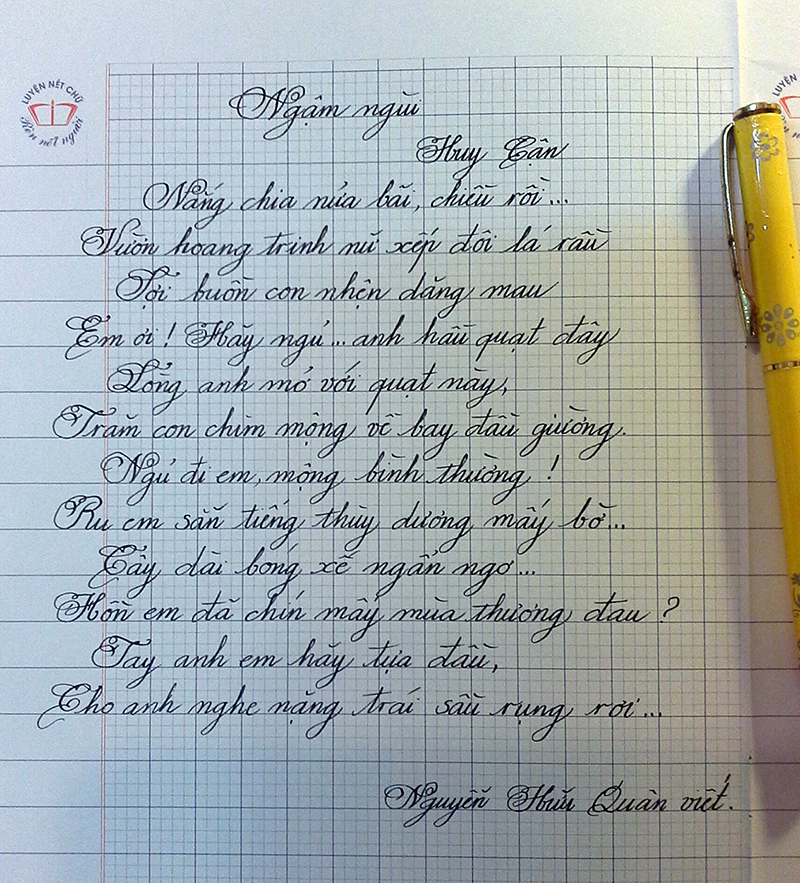 LUYỆN NÉT CHỮ
Rèn nết người
Ngậm ngùi
Huy Cận
Nắng chia nửa bãi, chiều rồi...
Vườn hoang trinh nữ xếp đôi lá rầu
Sợi buồn con nhện dăng mau
Em ơi! Hãy ngủ... anh hầu quạt đây
Lòng anh mở với quạt này,
Trăm con chim mộng về bay đầu giường.
Ngủ đi em, mộng bình thường!
Ru em sẵn tiếng thùy dương mấy bờ...
Cây dài bóng xế ngẩn ngơ...
Hồn em đã chín mấy mùa thương đau?
Tay anh em hãy tựa đầu,
Cho anh nghe nặng trái sầu rụng rơi...
Nguyễn Hữu Quân viết.